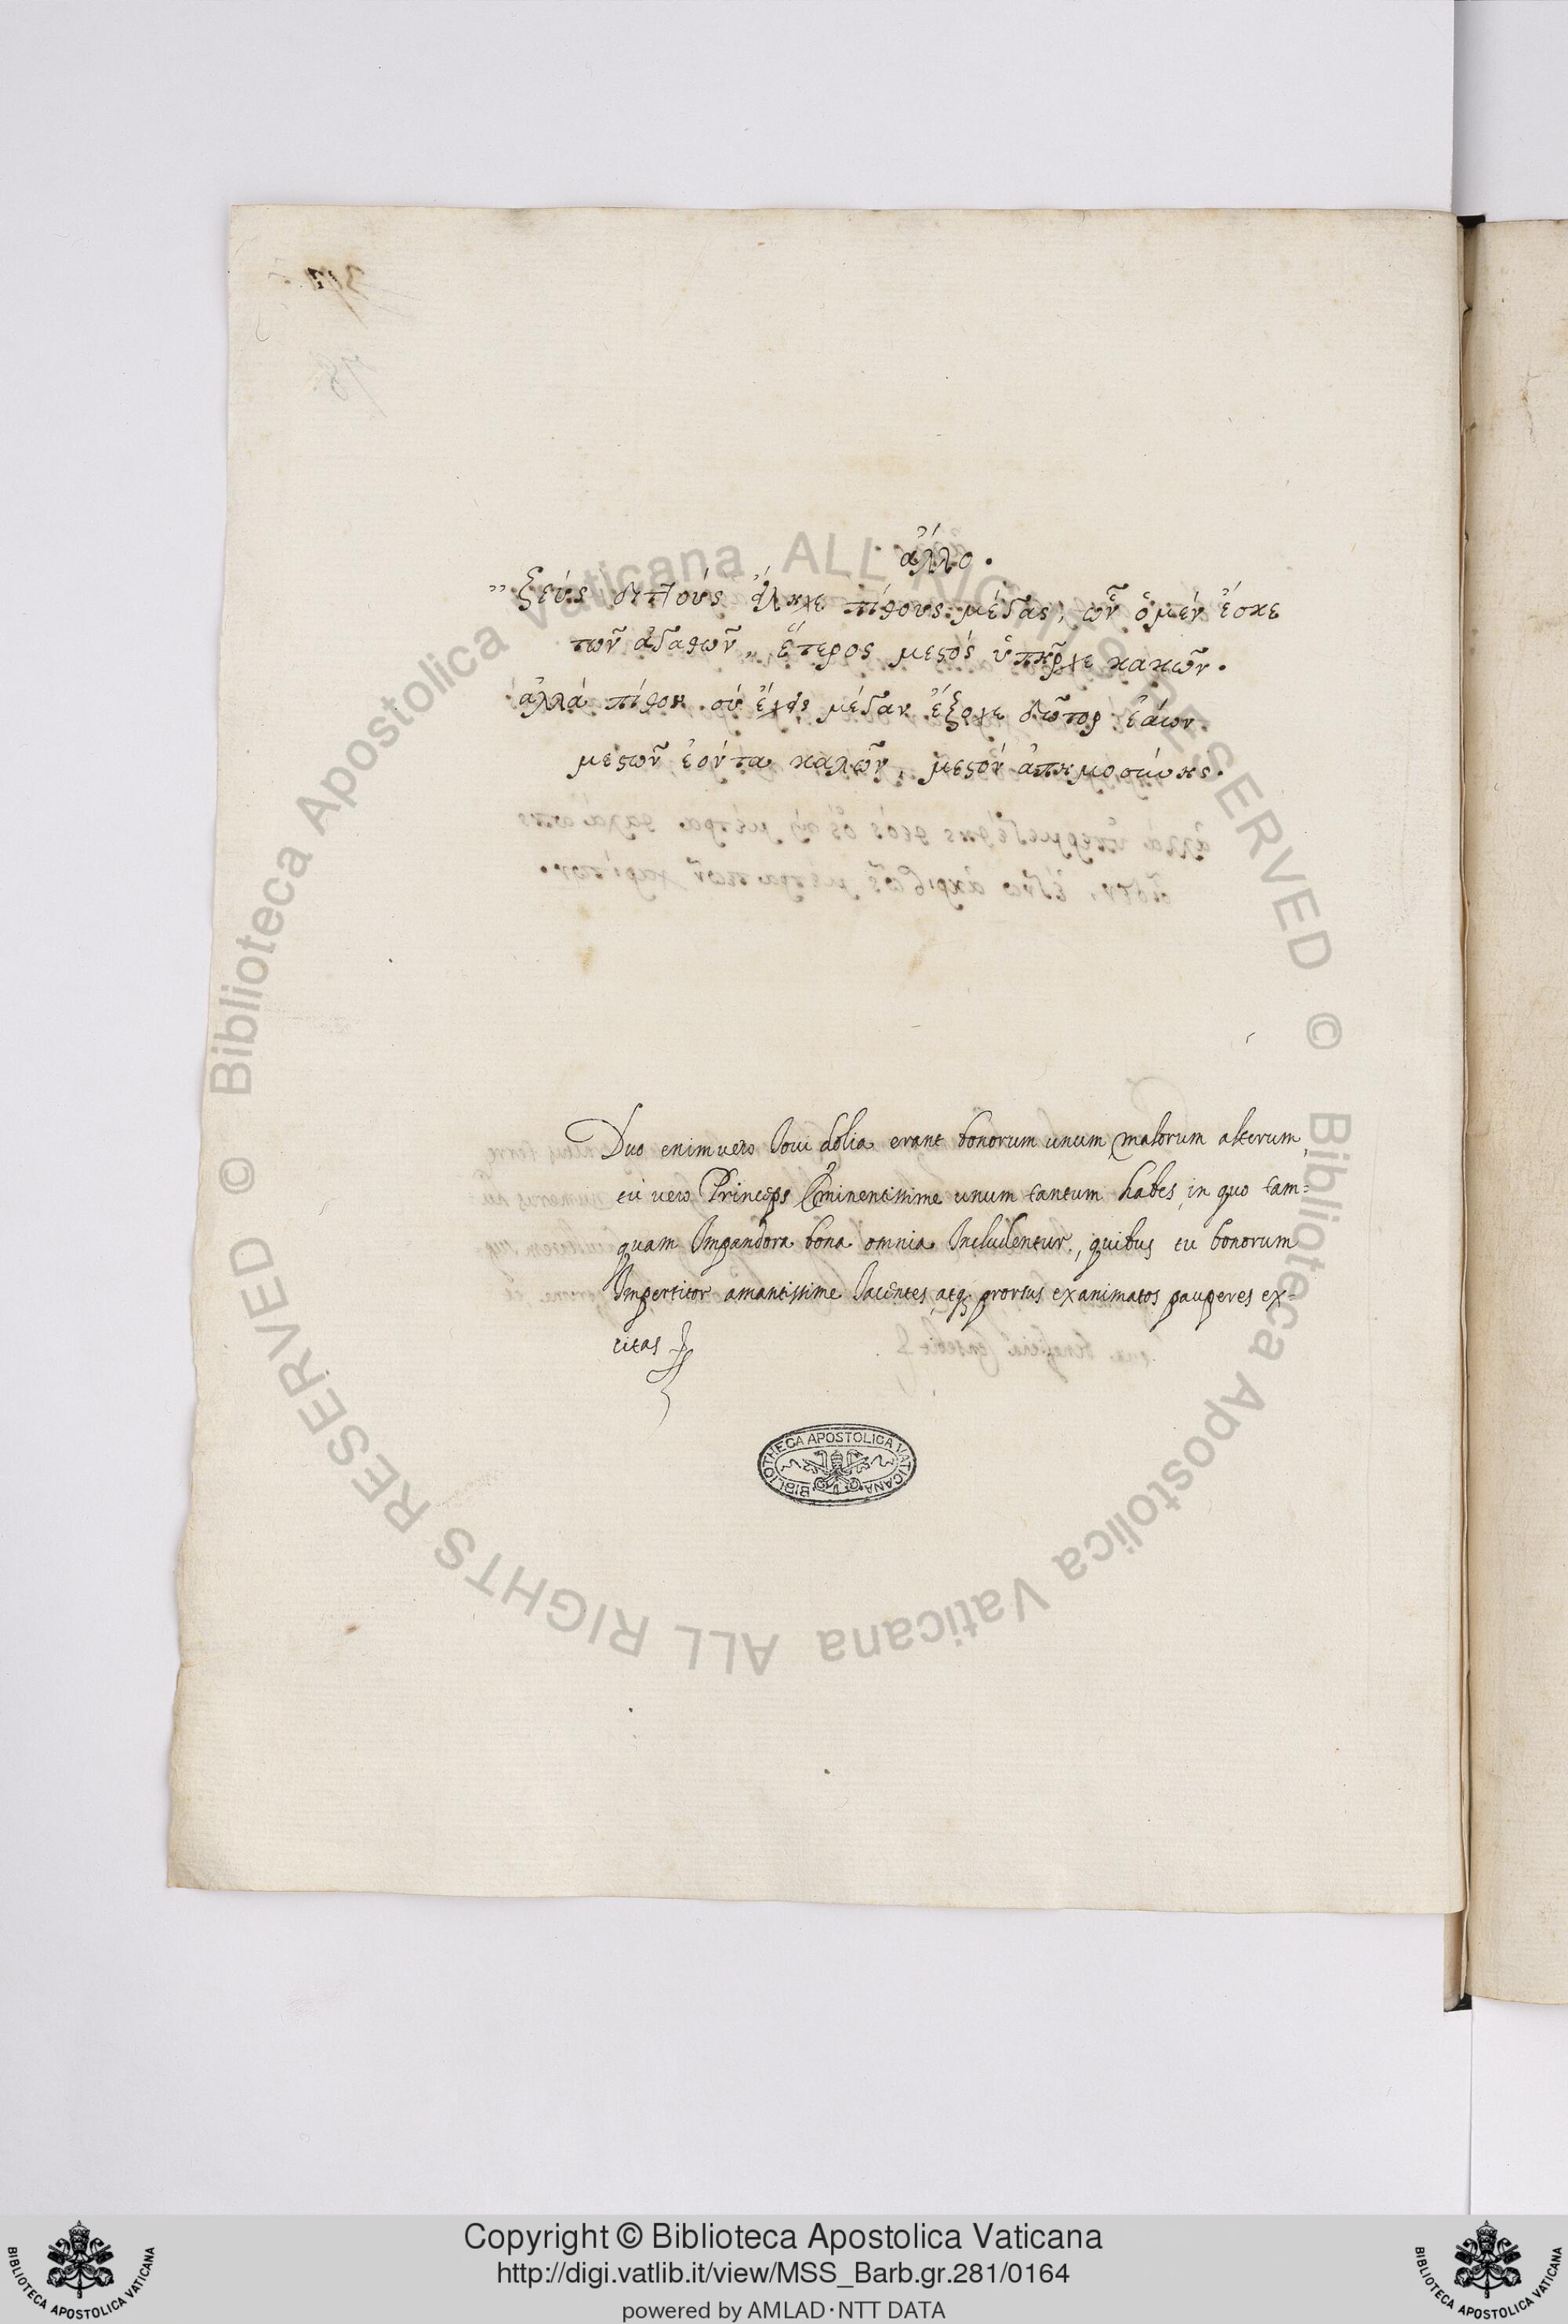 ἄλλο.
" ζεύς διττούς ἔληχε πίθους μέγας, ὧν ὁ μέν ἔσκε
τῶν ἀγαθῶν „ ἕτερος μεςός ὑπῆρχε κακῶν.
ἀλλά πίθον σύ ἔχεις μέγαν ἔξοχε δῶτορ ἐάων
μεςῶν ἐόντα καλῶν, μεςόν ἀπημοσύνης.
Duo enimuero Ioui dolia erant bonorum unum, malorum alterum,
tu uero Princeps Eminentissime unum tantum habes, in quo tam=
quam Inpandora bona omnia Includentur, quibus tu bonorum
Impertitor amantissime Iacentes, atq; prorsus exanimatos pauperes ex=
citas
BIBLIOTHECA APOSTOLICA VATICANA
© Biblioteca Apostolica Vaticana ALL RIGHTS RESERVED
© Biblioteca Apostolica Vaticana ALL RIGHTS RESERVED
Copyright © Biblioteca Apostolica Vaticana
http://digi.vatlib.it/view/MSS_Barb.gr.281/0164
powered by AMLAD·NTT DATA
BIBLIOTECA APOSTOLICA VATICANA
BIBLIOTECA APOSTOLICA VATICANA